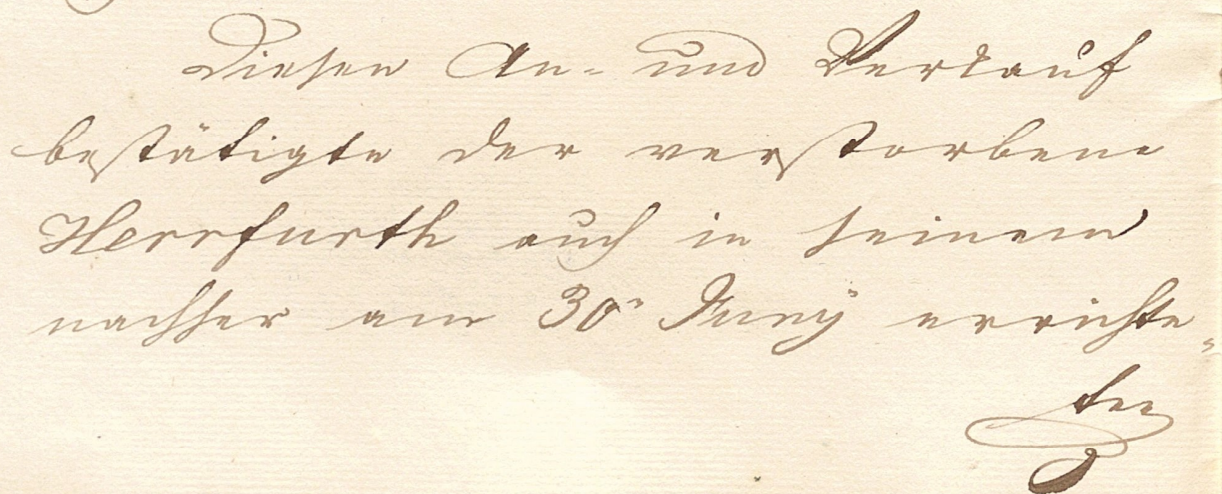 Diesen An- und Verkauf
bestätigte der verstorbene
Herrfurth auch in seinem
nachher am 30n Juny errichte-
ten